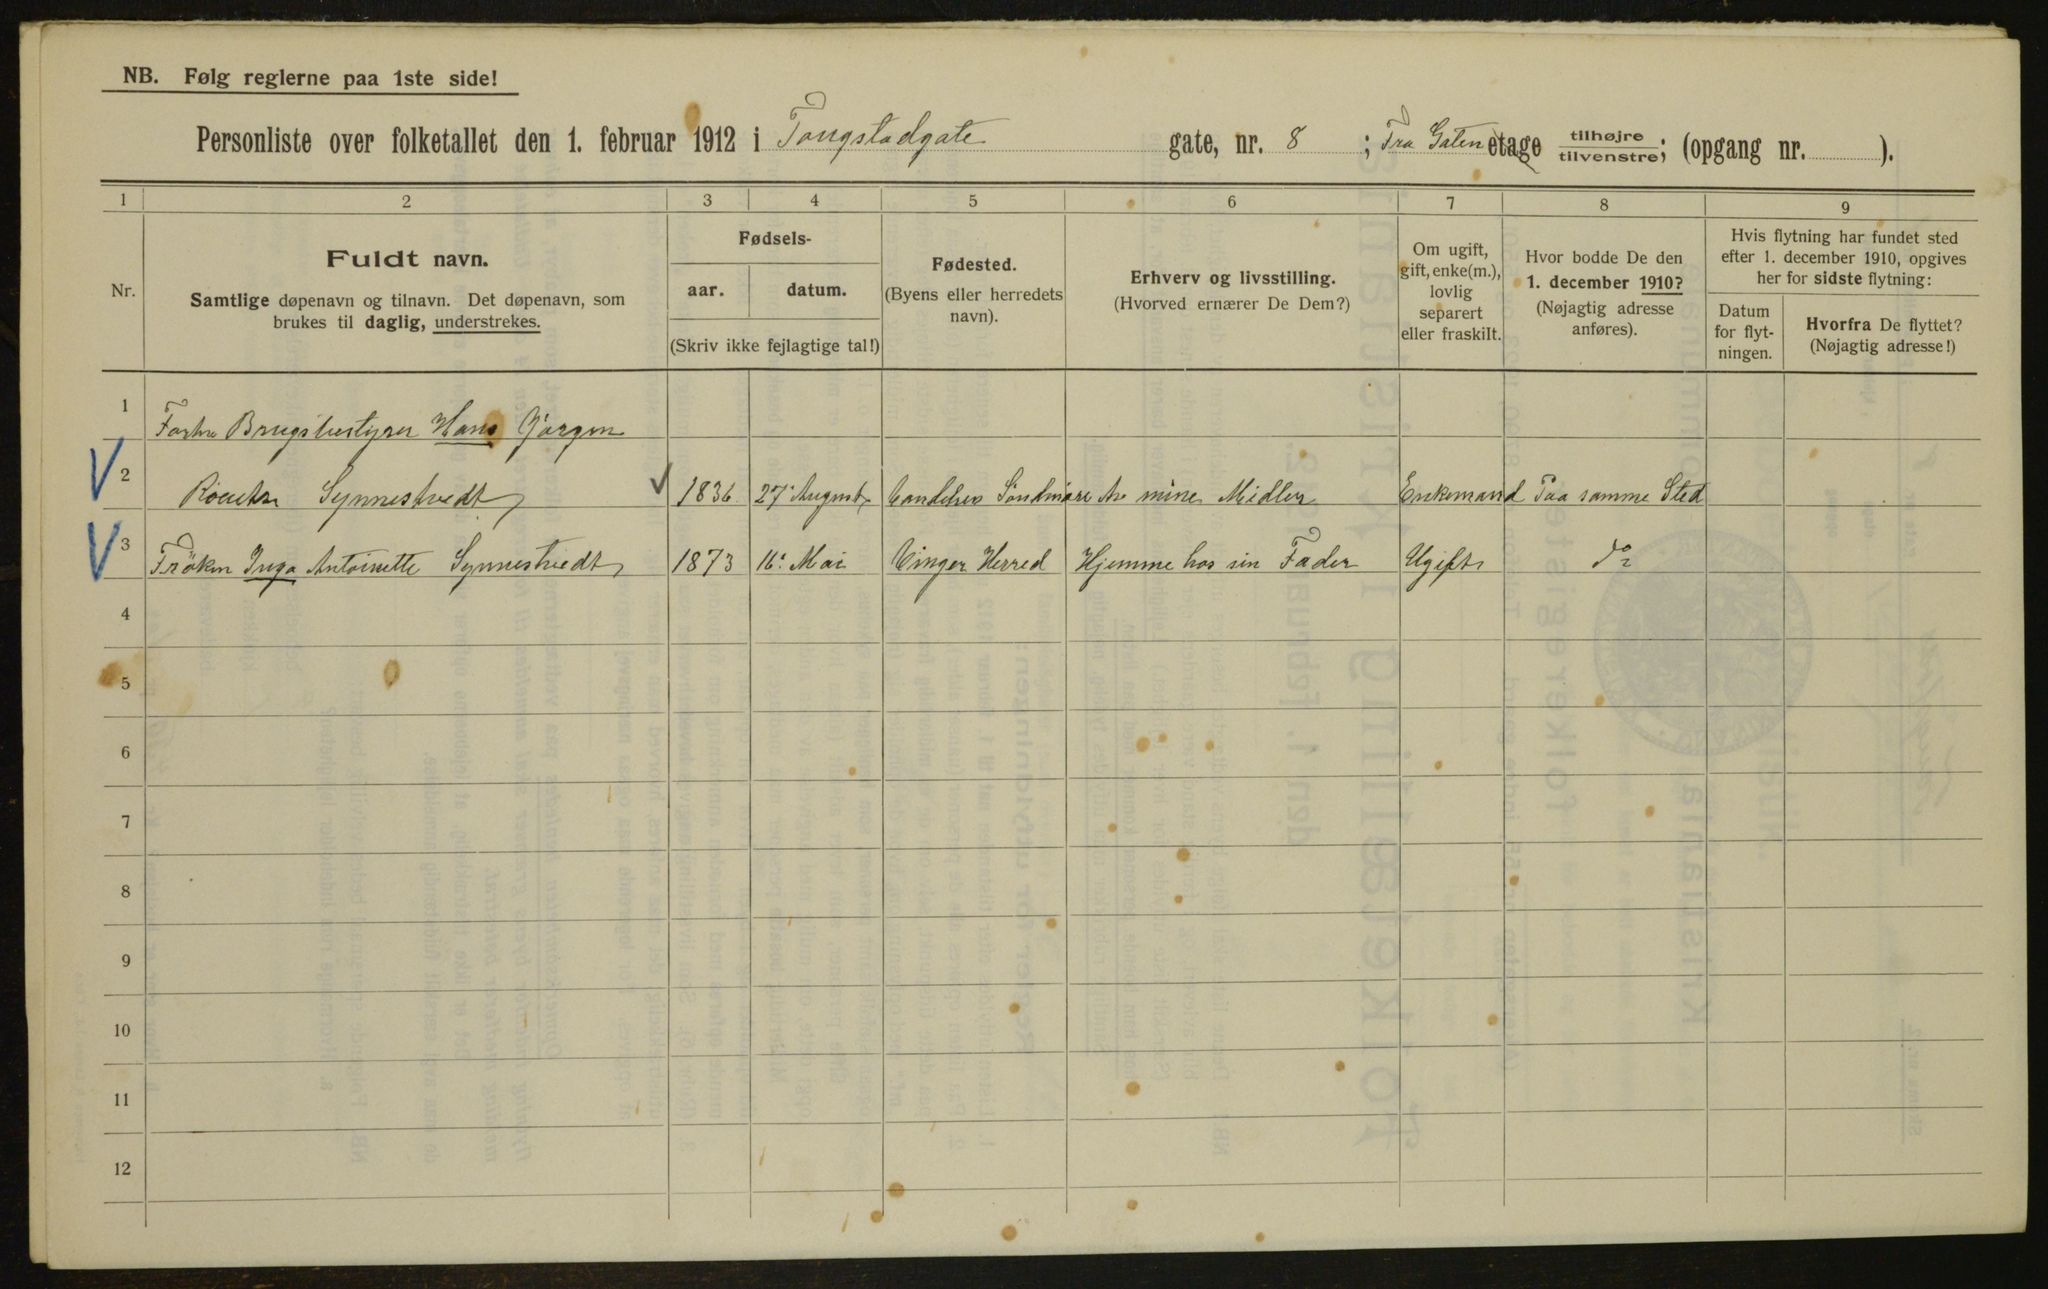 NB. Følg reglerne paa 1ste side!
Personliste over folketallet den 1. februar 1912 i Tougstadgate gate, nr. 8 ; Fra Gaten etage tilhøjre/tilvenstre; (opgang nr. ).
1 2 3 4 5 6 7 8 9
Nr.
Fuldt navn.
Samtlige døpenavn og tilnavn. Det døpenavn, som
brukes til daglig, understrekes.
Fødsels-
aar. datum.
(Skriv ikke fejlagtige tal!)
Fødested.
(Byens eller herredets
navn).
Erhverv og livsstilling.
(Hvorved ernærer De Dem?)
Om ugift,
gift, enke(m.),
lovlig
separert
eller fraskilt.
Hvor bodde De den
1. december 1910?
(Nøjagtig adresse
anføres).
Hvis flytning har fundet sted
efter 1. december 1910, opgives
her for sidste flytning:
Datum
for flyt-
ningen.
Hvorfra De flyttet?
(Nøjagtig adresse!)
1 Brugsbestyrer Hans Jörgen
2 Synnestvedt 1836 27. August Söndmöre Av mine Midler Enkemand Paa samme Sted
3 Fröken Inga Antoinette Synnestvedt 1873 16. Mai Vinger Herred Hjemme hos sin Fader Ugift do
4
5
6
7
8
9
10
11
12